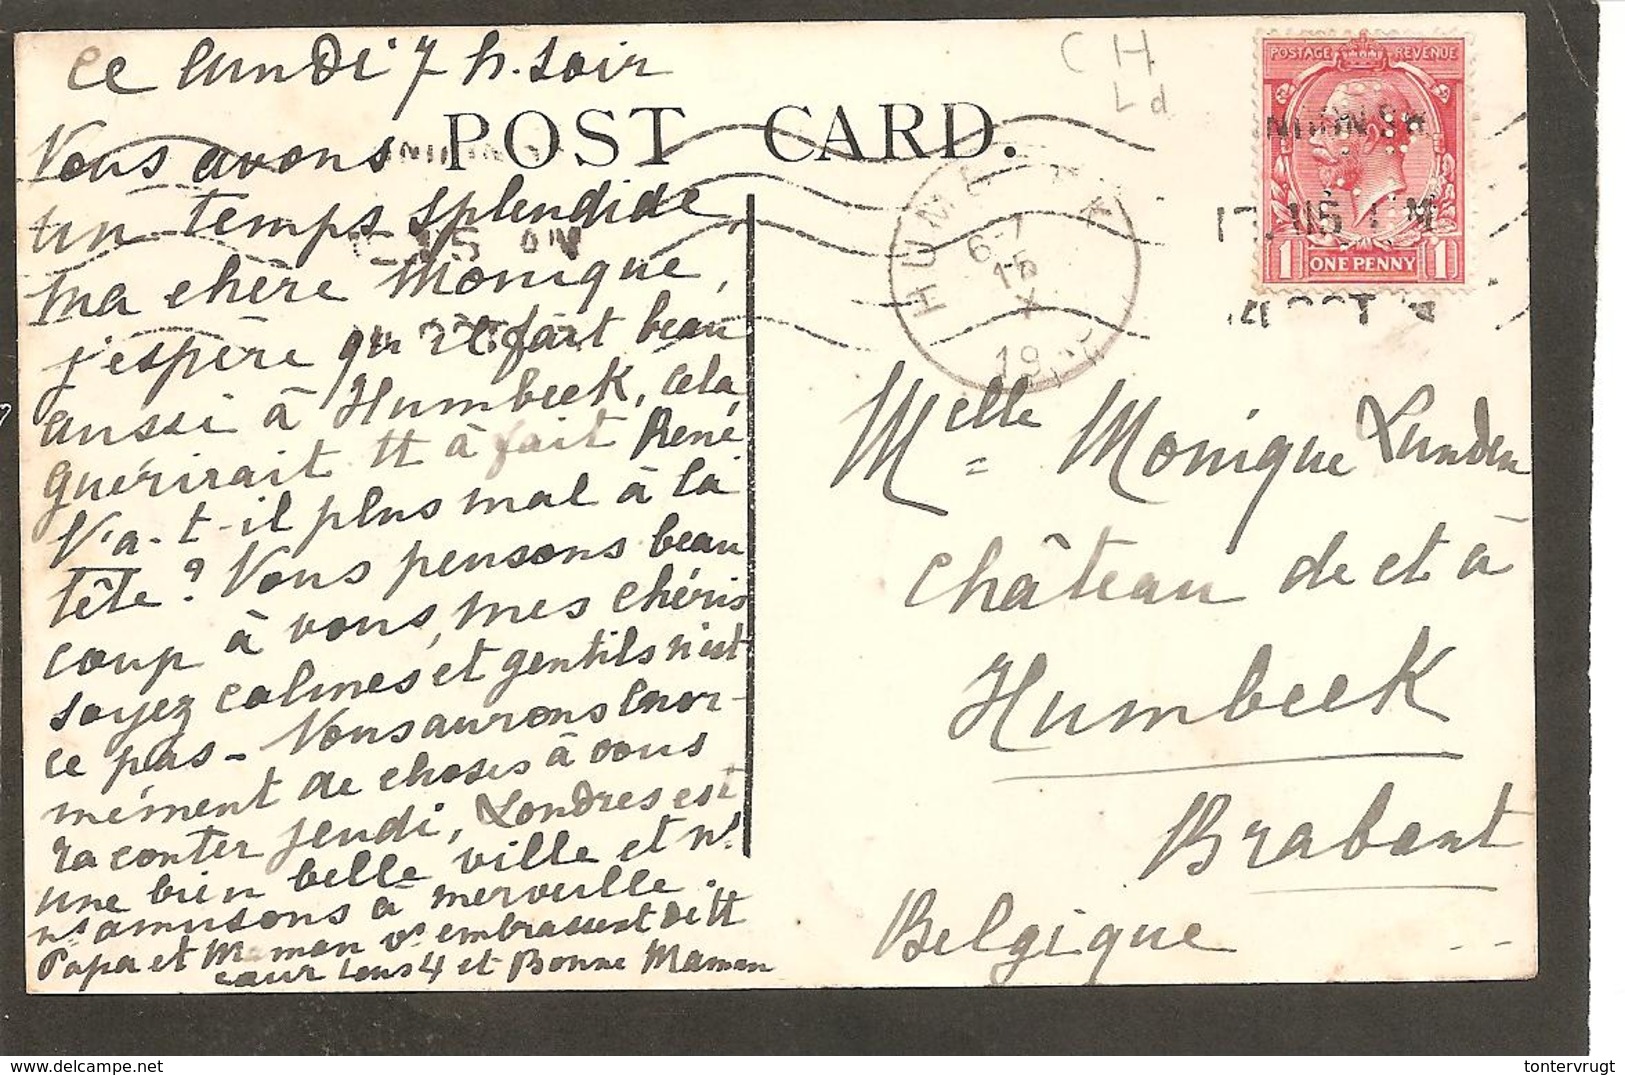 ce lundi 7 h. soir
POST CARD.
Vous avons
un temps splendide
ma chère Monique,
j'espère qu'il fait beau
aussi à Humbeek, cela
guérirait tt à fait René
V'a-t-il plus mal à la
tête? Vous pensons beau
coup à vous, mes chéris
soyez calmes et gentils n'est
ce pas - Vous aurons énor-
mément de choses à vous
raconter jeudi, Londres est
une bien belle ville et ns.
ns amusons à merveille.
Papa et Maman vs embrassent de tt
cœur tous 4 et Bonne Maman
CH
Ld
POSTAGE REVENUE
1 ONE PENNY 1
HUMBEEK
6-7
15
X
19
Melle Monique Lunden
Château de et à
Humbeek
Brabant
Belgique
tontervrugt
Copyright delcampe.net